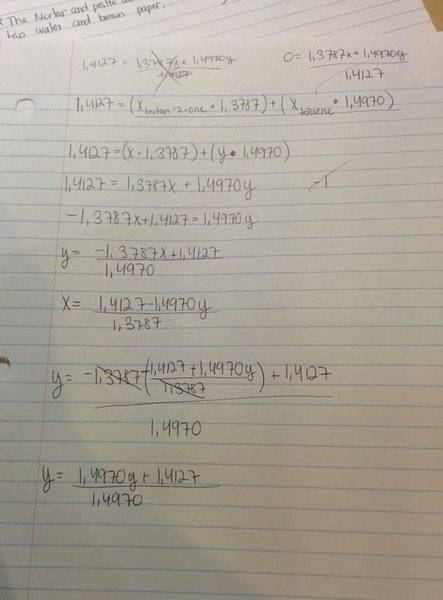 The Mortar and pestle
tap water and brown paper.
1,4127 = 1,3787x • 1,4970y / 1,4127
0 = 1,3787x + 1,4970y / 1,4127
1,4127 = (X butan-2-one • 1,3787) + (X toluene • 1,4970)
1,4127 = (x • 1,3787) + (y • 1,4970)
1,4127 = 1,3787x + 1,4970y
-1
-1,3787x + 1,4127 = 1,4970y
y = -1,3787x + 1,4127 / 1,4970
x = 1,4127 - 1,4970y / 1,3787
y = -1,3787 (-1,4127 + 1,4970y / 1,3787) + 1,4127 / 1,4970
y = 1,4970y + 1,4127 / 1,4970